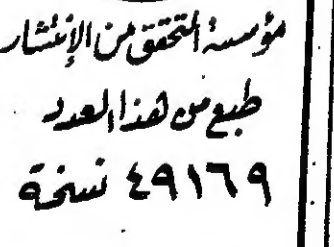 مؤسسة التحقق من الإنتشار
طبع من هذا العدد
٤٩١٦٩ نسخة